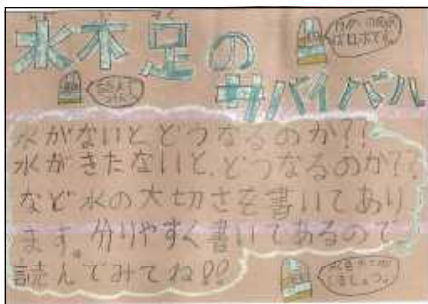 水不足の
サバイバル
水がないとどうなるのか??
水がきたないと、どうなるのか??
など水の大切さを書いてあり
ます。分りやすく書いてあるので
読んでみてね!!